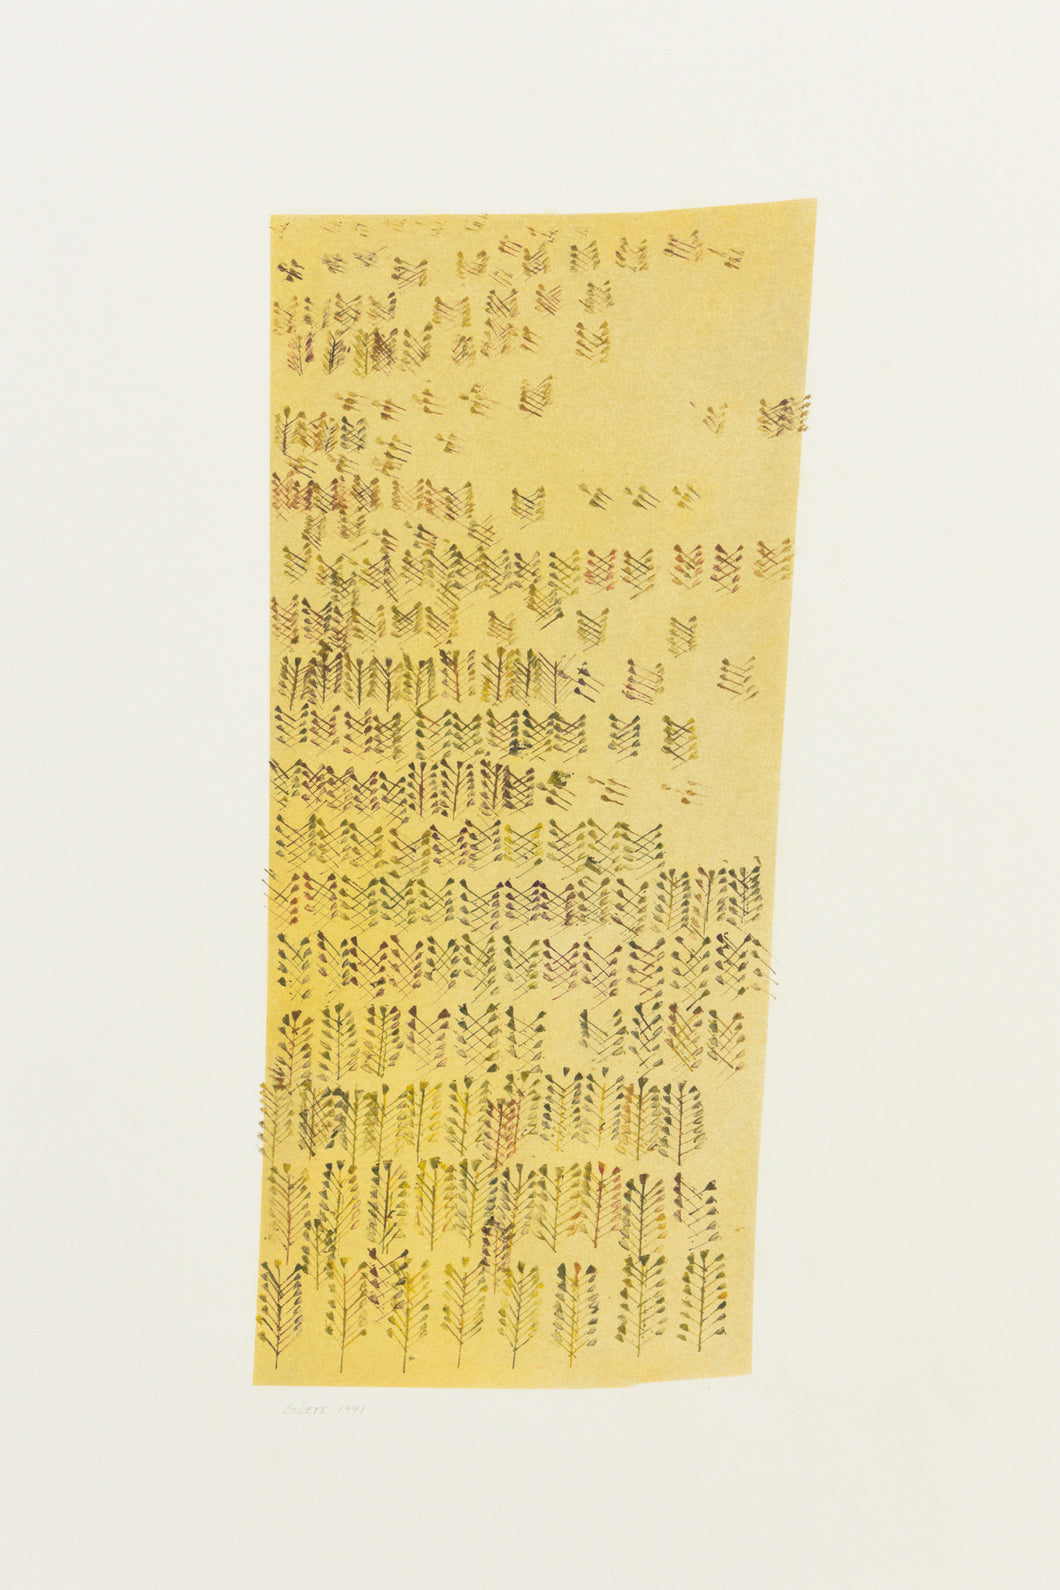 Sievers 1941